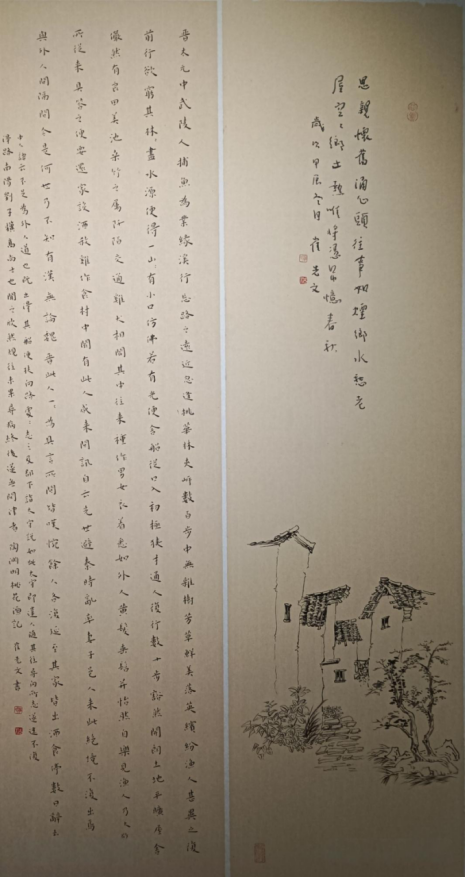 思親懷舊涌心頭往事如煙鄉水愁老
屋鄉土憶春秋
歲次甲辰冬月 崔志文
晉太元中武陵人捕魚為業緣溪行忘路之遠近忽逢桃華林夾岸數百步中無雜樹芳草鮮美落英繽紛漁人甚異之復
前行欲窮其林盡水源便得一山有小口彷彿若有光便舍船從口入初極狹才通人復行數十步豁然開朗土地平曠屋舍
儼然有良田美池桑竹之屬阡陌交通雞犬相聞其中往來種作男女衣著悉如外人黃髮垂髫并怡然自樂見漁人乃大驚問
所從來具答之便要還家設酒殺雞作食村中聞有此人咸來問訊自云先世避秦時亂率妻子邑人來此絕境不復出焉
與外人間隔問今是何世乃不知有漢無論魏晉此人一一為具言所聞皆嘆惋餘人各復延至其家皆出酒食停數日辭去
中人語云不足為外人道也既出得其船便扶向路處處志之及郡下詣太守說如此太守即遣人隨其往尋向所志遂迷不復
得路南陽劉子驥高尚士也聞之欣然規往未果尋病終後遂無問津者 陶淵明桃花源記 崔志文書